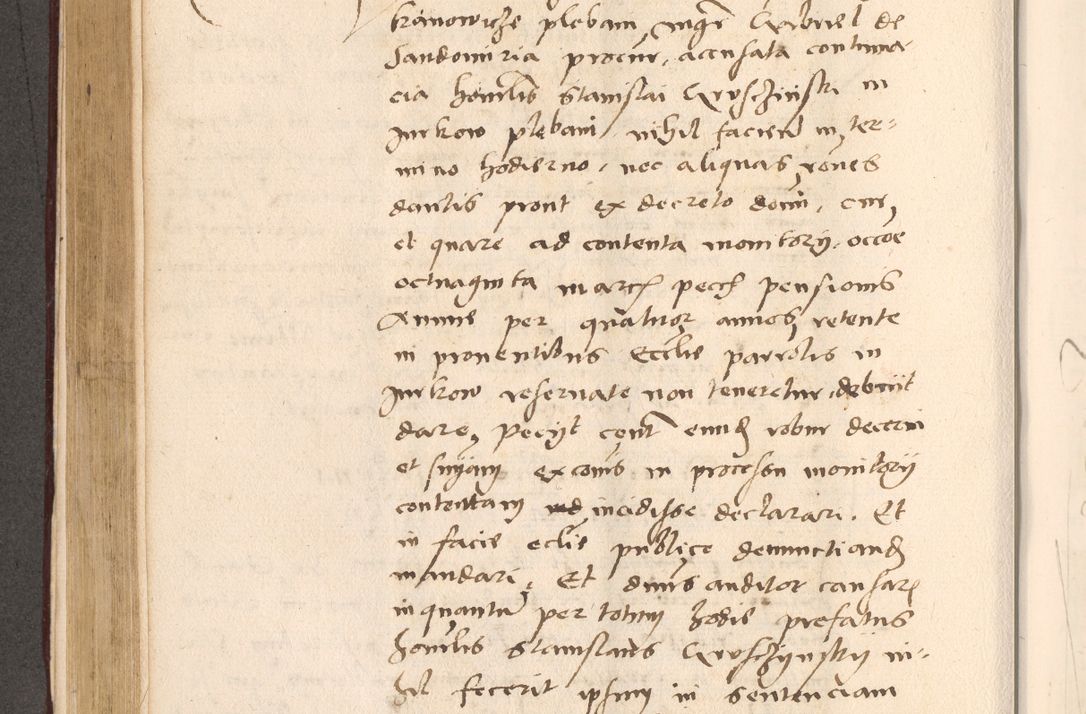 kanowicze plebani, mgr Gabriel de
Sandomiria procur, accusata contuma
cia honorlis Stanislai Groschinski in
Jurkow plebani, nihil facien in ter=
mino hodierno, nec aliquas rones
dantis prout ex decreto domi, cur,
et quare ad contenta monitorij, occoe
octuaginta marc pecc pensionis
Annue per quatuor annos retente
in prouentibus Ecclie parrolis in
Jurkow reseruate non teneretur, debuit
dare, Petijt cont eund robur decerni
et snyam excomis in processu monitorij
contentam incidisse declarari. Et
in facie eclie publice denunctiand
mandari, Et dnus auditor causar
inquantu per totum hodie prefatus
honorlis Stanislaus Groschijnskij ni=
hil fecerit ipsum in sentenciam